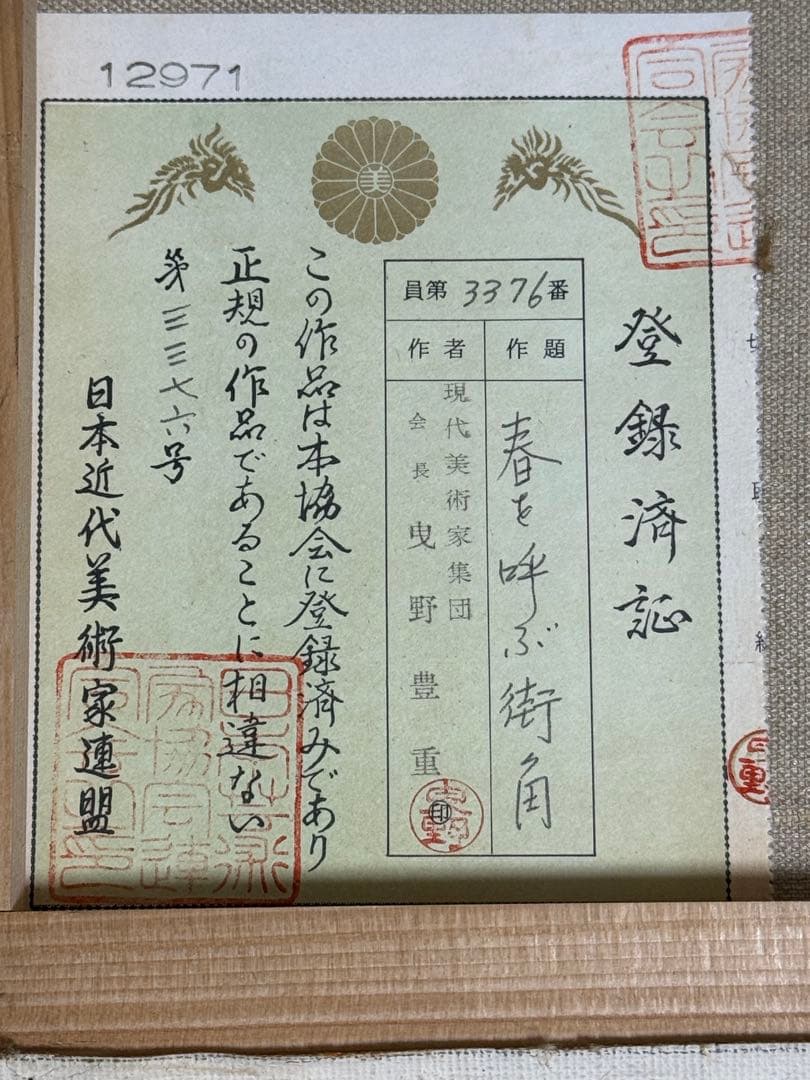 12971
美
登録済証
員第3376番
作題
春を呼ぶ街角
作者
現代美術家集団
会長 曳野豊重
㊞
この作品は本協会に登録済みであり
正規の作品であることに相違ない
第三三七六号
日本近代美術家連盟